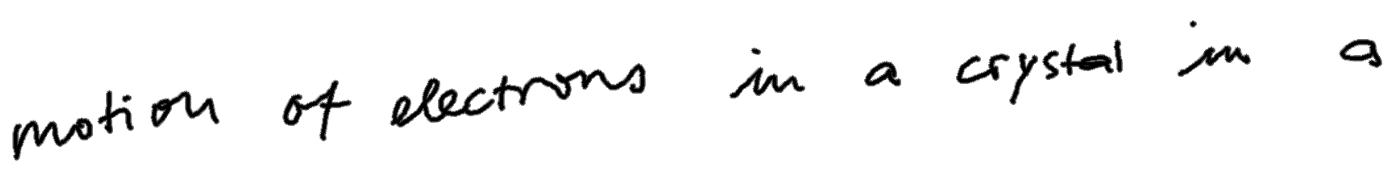 motion of electrons in a crystal in a